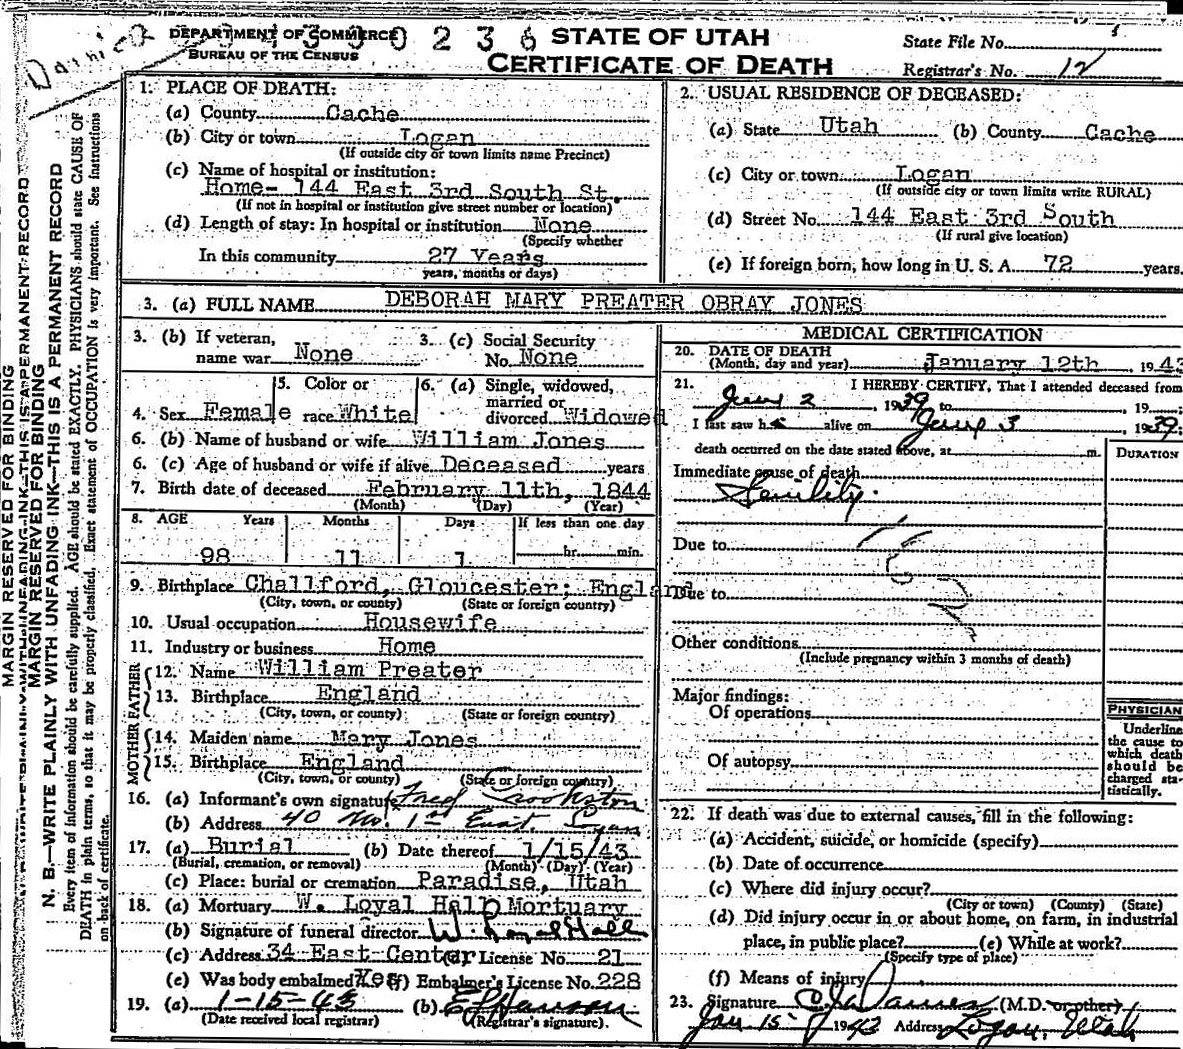 DEPARTMENT OF COMMERCE
BUREAU OF THE CENSUS
0236
STATE OF UTAH
CERTIFICATE OF DEATH
State File No.
Registrar's No. 12
MARGIN RESERVED FOR BINDING
MARGIN RESERVED FOR BINDING
N. B.—WRITE PLAINLY WITH UNFADING INK—THIS IS A PERMANENT RECORD
Every item of information should be carefully supplied. AGE should be stated EXACTLY. PHYSICIANS should state CAUSE OF
DEATH in plain terms, so that it may be properly classified. Exact statement of OCCUPATION is very important. See instructions
on back of certificate.
1. PLACE OF DEATH:
(a) County Cache
(b) City or town Logan
(If outside city or town limits name Precinct)
(c) Name of hospital or institution:
Home- 144 East 3rd South St.
(If not in hospital or institution give street number or location)
(d) Length of stay: In hospital or institution None
(Specify whether
In this community 27 Years
years, months or days)
2. USUAL RESIDENCE OF DECEASED:
(a) State Utah (b) County Cache
(c) City or town Logan
(If outside city or town limits write RURAL)
(d) Street No. 144 East 3rd South
(If rural give location)
(e) If foreign born, how long in U. S. A. 72 years.
3. (a) FULL NAME DEBORAH MARY PREATER OBRAY JONES
3. (b) If veteran, name war None
3. (c) Social Security No. None
4. Sex Female
5. Color or race White
6. (a) Single, widowed, married or divorced Widowed
6. (b) Name of husband or wife William Jones
6. (c) Age of husband or wife if alive Deceased years
7. Birth date of deceased February 11th, 1844
(Month) (Day) (Year)
8. AGE Years Months Days If less than one day
98 11 1 hr. min.
9. Birthplace Challford, Gloucester; England
(City, town, or county) (State or foreign country)
10. Usual occupation Housewife
11. Industry or business Home
FATHER
12. Name William Preater
13. Birthplace England
(City, town, or county) (State or foreign country)
MOTHER
14. Maiden name Mary Jones
15. Birthplace England
(City, town, or county) (State or foreign country)
16. (a) Informant's own signature Fred Crookston
(b) Address 40 No. 1st East. Logan
17. (a) Burial (b) Date thereof 1/15/43
(Burial, cremation, or removal) (Month) (Day) (Year)
(c) Place: burial or cremation Paradise, Utah
18. (a) Mortuary W. Loyal Hall Mortuary
(b) Signature of funeral director W. Loyal Hall
(c) Address 34 East Center (d) License No. 21
(e) Was body embalmed Yes (f) Embalmer's License No. 228
19. (a) 1-15-43 (b)
(Date received local registrar) (Registrar's signature).
MEDICAL CERTIFICATION
20. DATE OF DEATH
(Month, day and year) January 12th 1943
21. I HEREBY CERTIFY, That I attended deceased from
June 2, 1939 to , 19 ;
I last saw h alive on June 3, 1939;
death occurred on the date stated above, at m.
DURATION
Immediate cause of death
Senility.
Due to
Due to
Other conditions
(Include pregnancy within 3 months of death)
Major findings:
Of operations
Of autopsy
PHYSICIAN
Underline
the cause to
which death
should be
charged sta-
tistically.
22. If death was due to external causes, fill in the following:
(a) Accident, suicide, or homicide (specify)
(b) Date of occurrence
(c) Where did injury occur?
(City or town) (County) (State)
(d) Did injury occur in or about home, on farm, in industrial
place, in public place? (e) While at work?
(Specify type of place)
(f) Means of injury
23. Signature (M.D. or other)
Jan 15 1943 Address Logan, Utah